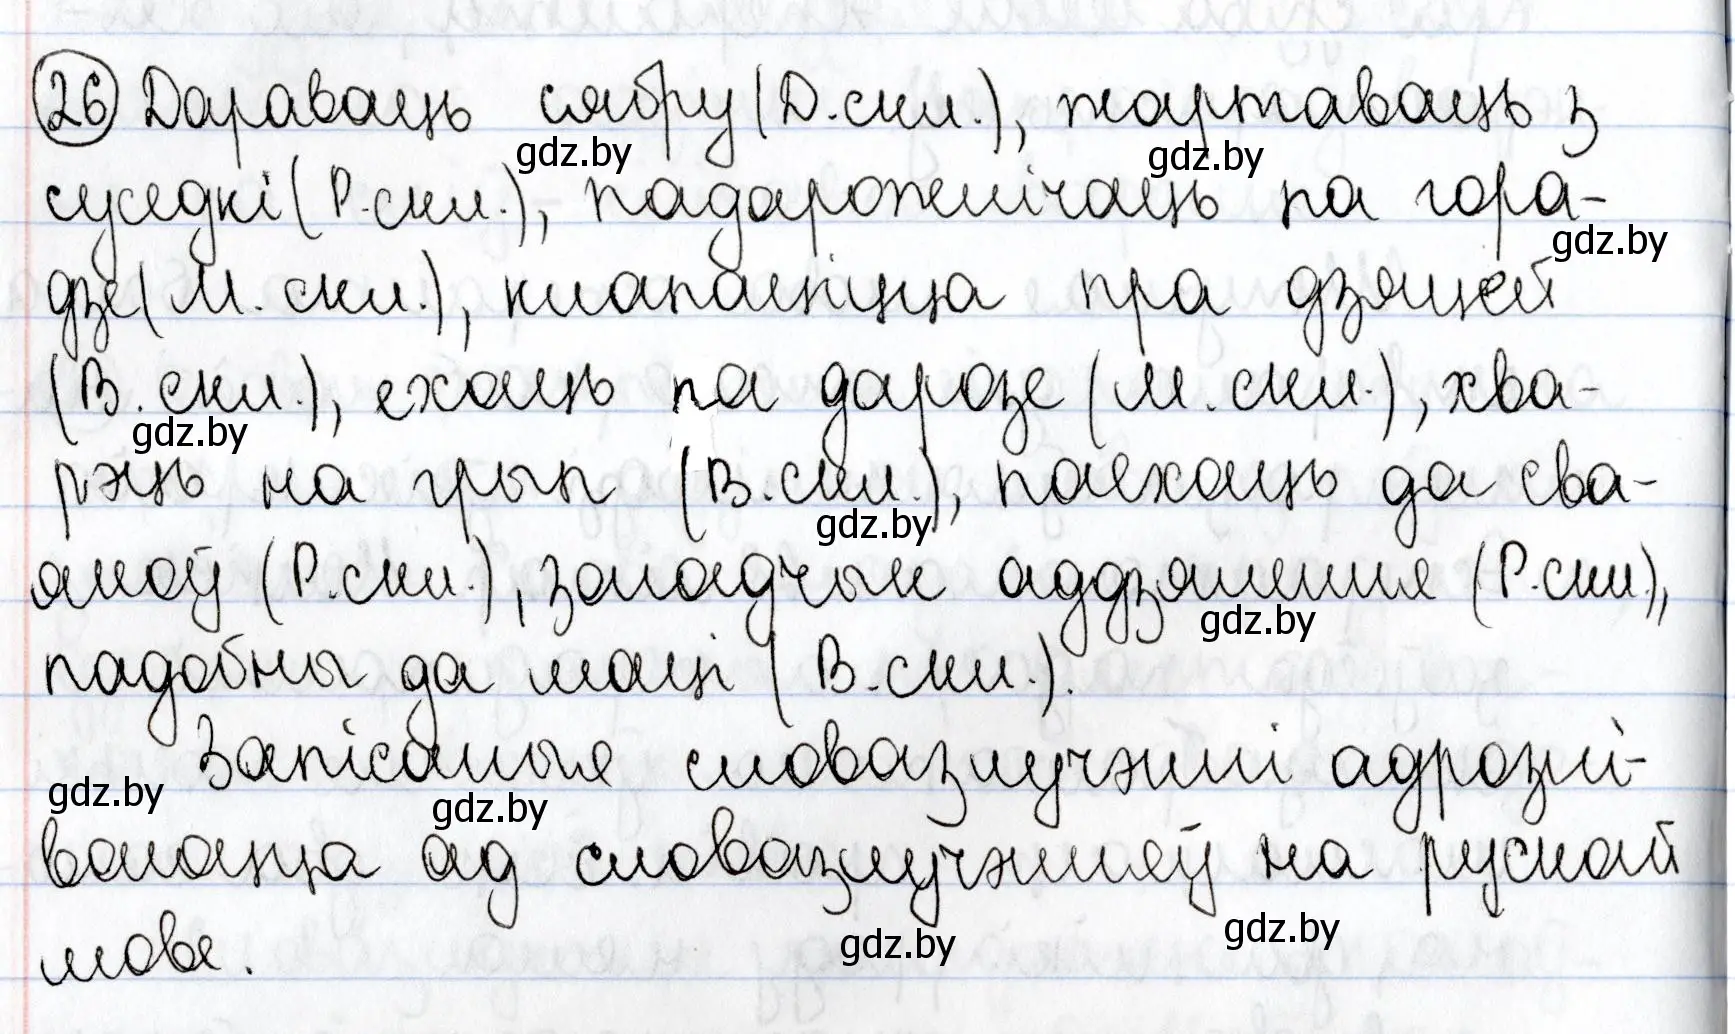 26 Дараваць сябру (Д.скл.), жартаваць з
gdz.by gdz.by
суседкі (Р.скл.), падарожнічаць па гора-
gdz.by
дзе (М.скл.), клапаціцца пра дзяцей
(В.скл.), ехаць па дарозе (М.скл.), хва-
gdz.by
рэць на грып (В.скл.), паехаць да сва-
gdz.by
якоў (Р.скл.), загадчык аддзялення (Р.скл.),
gdz.by
падобны да маці (В.скл.).
Запісаныя словазлучэнні адрозні-
gdz.by gdz.by
ваюцца ад словазлучэнняў на рускай
gdz.by gdz.by
мове.